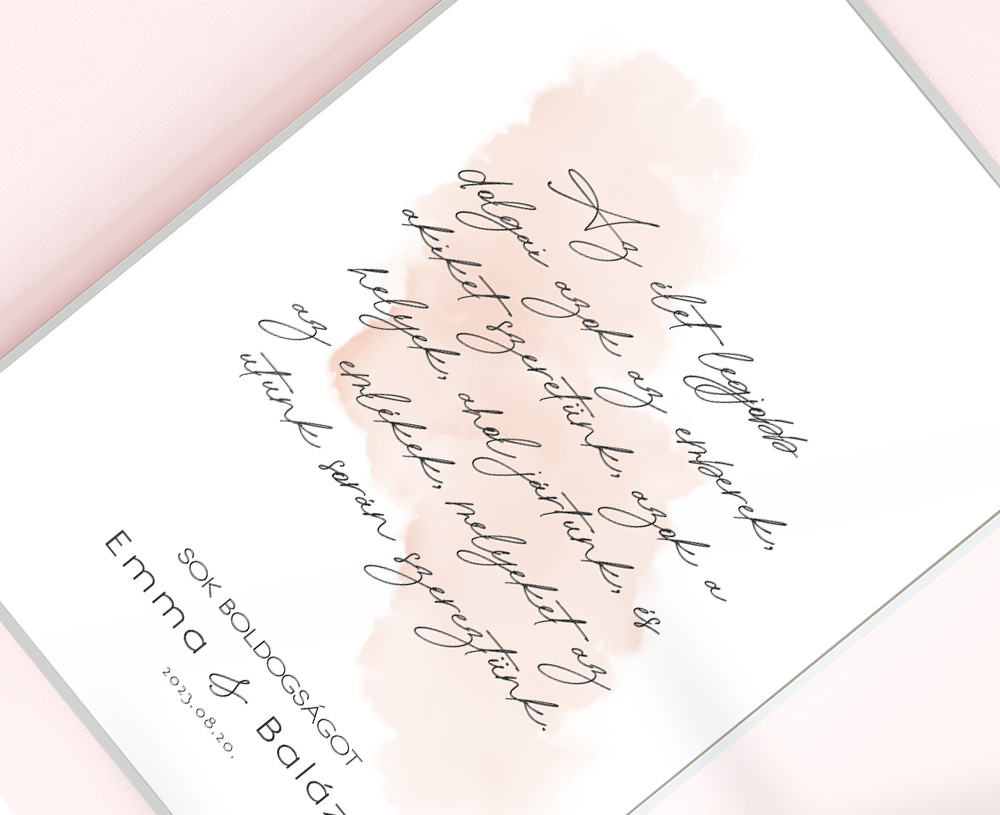 Az élet legjobb
dolgai azok az emberek,
akiket szeretünk, azok a
helyek, ahol jártunk, és
az emlékek, melyeket az
utunk során szereztünk.
SOK BOLDOGSÁGOT
Emma & Baláz
2023.08.20.